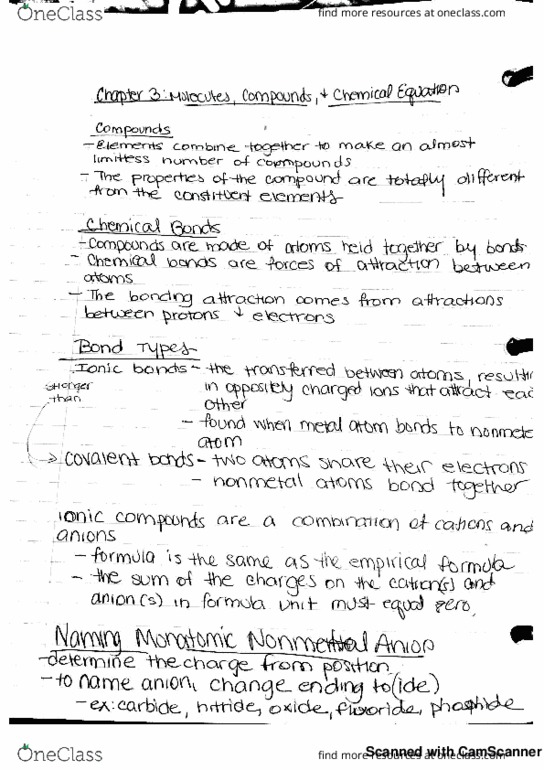 OneClass
find more resources at oneclass.com
Chapter 3: Molecules, Compounds, + Chemical Equation
Compounds
- Elements combine together to make an almost
limitless number of compounds
- The properties of the compound are totally different
from the constituent elements
Chemical Bonds
- Compounds are made of atoms held together by bonds
- Chemical bonds are forces of attraction between
atoms
- The bonding attraction comes from attractions
between protons + electrons
Bond Types
Ionic bonds - the transferred between atoms, resultin
in oppositely charged ions that attract eac
other
- found when metal atom bonds to nonmeta
atom
stronger
than
> covalent bonds - two atoms share their electrons
- nonmetal atoms bond together
ionic compounds are a combination of cations and
anions
- formula is the same as the empirical formula
- the sum of the charges on the cation(s) and
anion(s) in formula unit must equal zero.
Naming Monatomic Nonmetal Anion
- determine the charge from position
- to name anion, change ending to (ide)
- ex: carbide, nitride, oxide, fluoride, phosphide
OneClass
find more resources at oneclass.com
Scanned with CamScanner